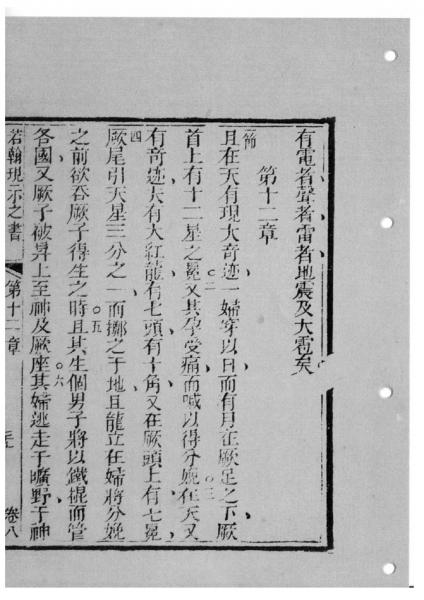 有電者聲者雷者地震及大雹矣
第十二章
節 且在天有現大奇迹一婦穿以日而有月在厥足之下厥
首上有十二星之冕 二 又其孕受痛而喊以得分娩 三 在天又
有奇迹夫有大紅龍有七頭有十角又在厥頭上有七冕
四 厥尾引天星三分之一而擲之于地且龍立在婦將分娩
之前欲吞厥子得生之時 五 且其生個男子將以鐵棍而管
各國又厥子被昇上至神及厥座 六 其婦逃走于曠野于神
若翰現示之書 第十二章 卷八